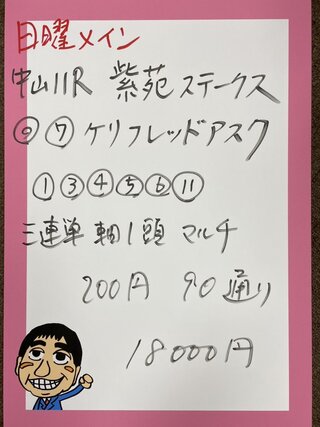 日曜メイン
中山11R 紫苑ステークス
◎⑦ケリフレッドアスク
①③④⑤⑥⑪
三連単 軸1頭 マルチ
200円 90通り
18000円